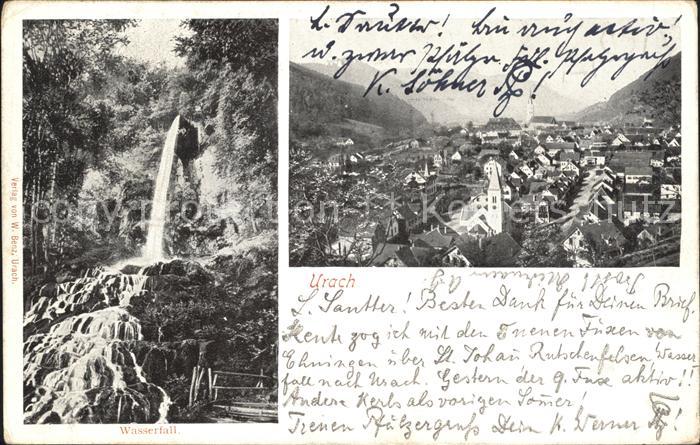 L. Sautter! bin auch activ!
u. zwar Pfälzer.
K. Löhner
Verlag von W. Benz, Urach.
Urach
L. Sautter! Besten Dank für Deinen Brief.
Heute zog ich mit den Füxen von
Ehningen über St. Johan Rutschenfelsen Wasser
fall nach Urach. Gestern der 9. Fux aktiv!!
Andere Kerls als vorigen Somer!
Treuen Pfälzergruss Dein K. Werner
Wasserfall.